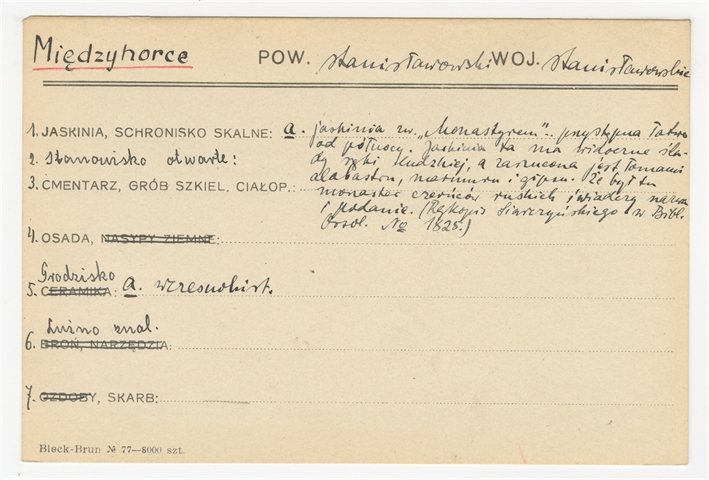 Międzyhorce POW. stanisławowski WOJ. stanisławowskie
1. JASKINIA, SCHRONISKO SKALNE: a. jaskinia zw. „Monastyrem”. przystępna łatwo
od północy. Jaskinia ta ma widoczne śla-
2. Stanowisko otwarte: dy ręki ludzkiej, a zarzucona jest łomami
3. CMENTARZ, GRÓB SZKIEL, CIAŁOP.: alabastru, marmuru i gipsu. Że był tu
monaster czerńców ruskich świadczy nazwa
i podanie. (Rękopis Siarczyńskiego w Bibl.
4. OSADA, NASYPY ZIEMNE: Ossol. № 1825.)
Grodzisko
5. CERAMIKA: a. wczesnohist.
Luźno znal.
6. BROŃ, NARZĘDZIA:
7. OZDOBY, SKARB:
Bieck-Brun № 77—8000 szt.